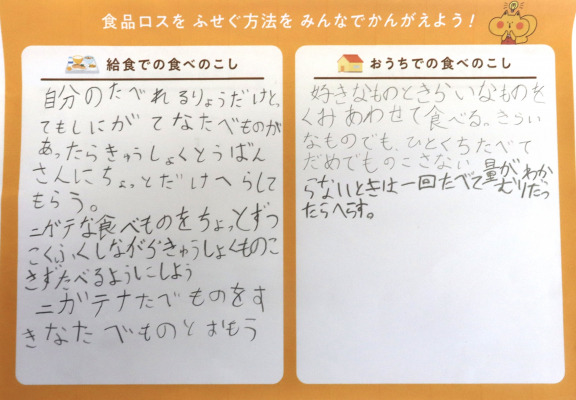 食品ロスを ふせぐ方法を みんなでかんがえよう！
給食での食べのこし
自分のたべれるりょうだけと、
てもしにがてなたべものが
あったらきゅうしょくとうばん
さんにちょっとだけへらして
もらう。
ニガテな食べものをちょっとずつ
こくふくしながらきゅうしょくものこ
さずたべるようにしよう
ニガテナたべものをす
きなたべものとおもう
おうちでの食べのこし
好きなものときらいなものを
くみあわせて食べる。きらい
なものでも、ひとくちたべて
だめでものこさない 量がわか
らないときは一回たべてむりだっ
たらへらす。